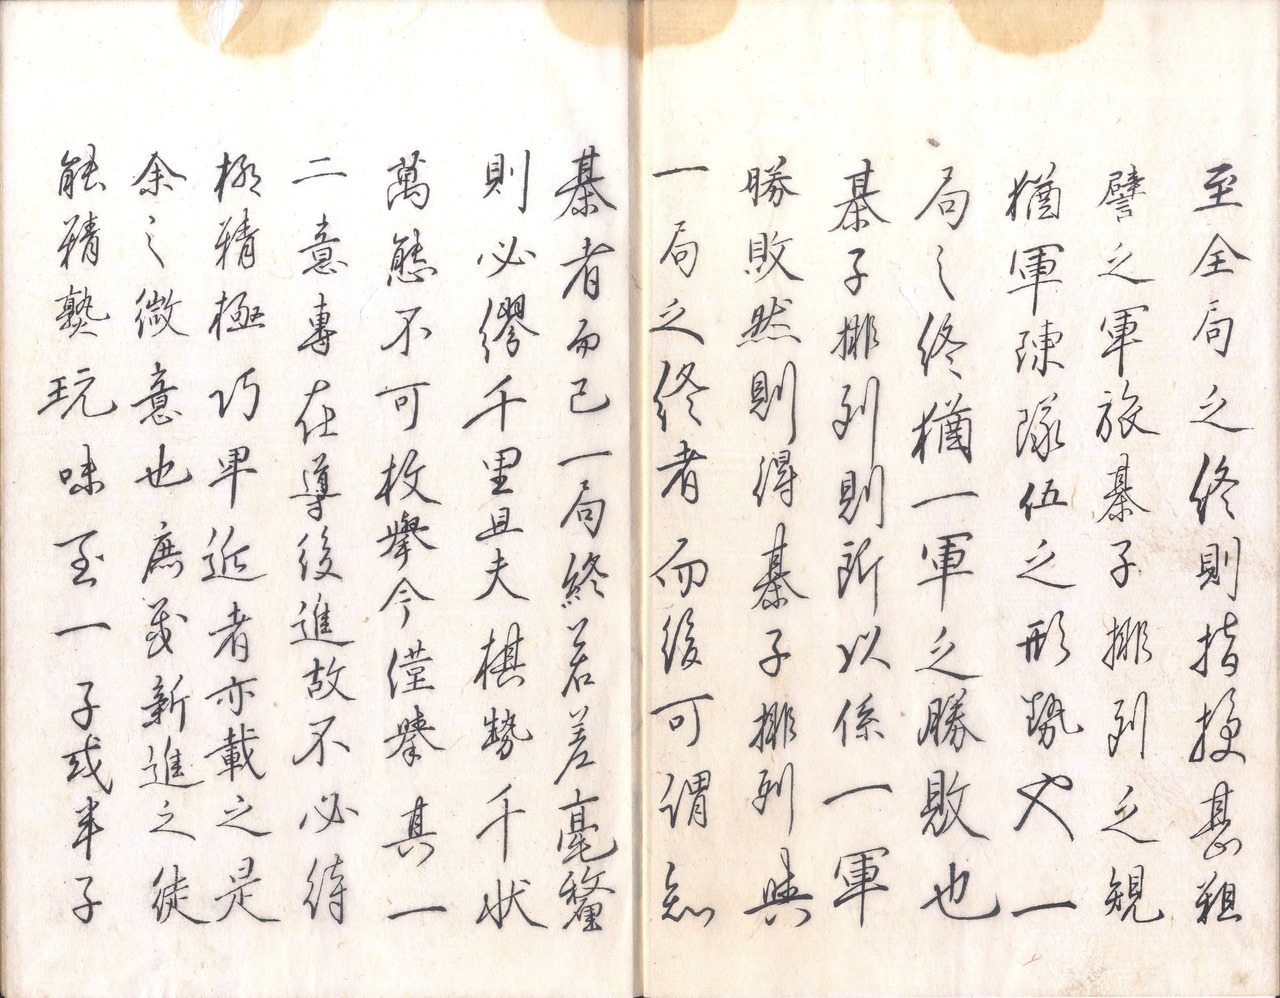 至全局之終則指授甚粗
譬之軍旅棊子排列之規
猶軍陳隊伍之形勢也一
局之終猶一軍之勝敗也
棊子排列則所以係一軍
勝敗然則得棊子排列與
一局之終者而後可謂知
棊者而已一局終若差毫釐
則必繆千里且夫棋勢千狀
萬態不可枚擧今僅擧其一
二意專在導後進故不必待
極精極巧卑近者亦載之是
余之微意也庶幾新進之徒
能精熟玩味至一子或半子